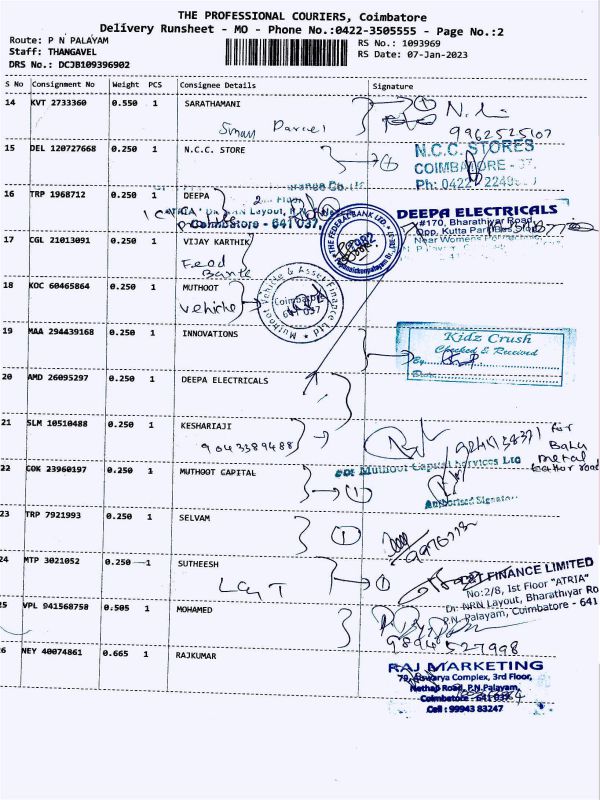 THE PROFESSIONAL COURIERS, Coimbatore
Delivery Runsheet - MO - Phone No.:0422-3505555 - Page No.:2
Route: P N PALAYAM
Staff: THANGAVEL
DRS No.: DCJB109396902
RS No.: 1093969
RS Date: 07-Jan-2023
S No Consignment No Weight PCS Consignee Details Signature
14 KVT 2733360 0.550 1 SARATHAMANI
9962525107
15 DEL 120727668 0.250 1 N.C.C. STORE
N.C.C. STORES
COIMBATORE - 37.
Ph: 0422
16 TRP 1968712 0.250 1 DEEPA
Layout, P.N.
Coimbatore - 641 037.
THE FEDERAL BANK LTD.
1982
DEEPA ELECTRICALS
#170, Bharathiyar Road,
Opp. Kutta Park Bus Stop
Near Women's
17 CGL 21013091 0.250 1 VIJAY KARTHIK
Fed
Bank
18 KOC 60465864 0.250 1 MUTHOOT
Vehicle
Muthoot Vehicle & Asset Finance Ltd
Coimbatore
641 037
19 MAA 294439168 0.250 1 INNOVATIONS
Kidz Crush
Checked & Received
By
Date
20 AMD 26095297 0.250 1 DEEPA ELECTRICALS
21 SLM 10510488 0.250 1 KESHARIAJI
9043389488
for
Balu
metal
22 COK 23960197 0.250 1 MUTHOOT CAPITAL
For Muthoot Capital Services Ltd
Authorised Signatory
23 TRP 7921993 0.250 1 SELVAM
24 MTP 3021052 0.250 1 SUTHEESH
L&T
L&T FINANCE LIMITED
No:2/8, 1st Floor "ATRIA"
Dr. NRN Layout, Bharathiyar Ro
P.N. Palayam, Coimbatore - 641
25 VPL 941568758 0.505 1 MOHAMED
9894527998
26 NEY 40074861 0.665 1 RAJKUMAR
RAJ MARKETING
79, Eswarya Complex, 3rd Floor,
Nethaji Road, P.N.Palayam,
Coimbatore - 641 037
Cell : 99943 83247